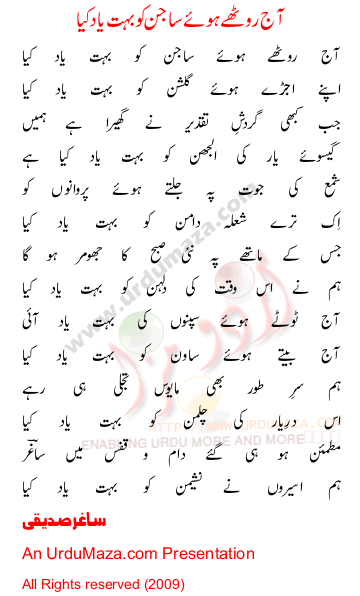 آج روٹھے ہوئے ساجن کو بہت یاد کیا
آج روٹھے ہوئے ساجن کو بہت یاد کیا
اپنے اجڑے ہوئے گلشن کو بہت یاد کیا
جب کبھی گردشِ تقدیر نے گھیرا ہے ہمیں
گیسوئے یار کی الجھن کو بہت یاد کیا ہے
شمع کی جوت پہ جلتے ہوئے پروانوں کو
اِک ترے شعلہ دامن کو بہت یاد کیا
جس کے ماتھے پہ نئی صبح کا جھومر ہو گا
ہم نے اس وقت کی دلہن کو بہت یاد کیا
آج ٹوٹے ہوئے سپنوں کی بہت یاد آئی
آج بیتے ہوئے ساون کو بہت یاد کیا
ہم سرِ طور بھی مایوسِ تجلی ہی رہے
اس دربار کی چلمن کو بہت یاد کیا
مطمئن ہو ہی گئے دام و قفس میں ساغرؔ
ہم اسیروں نے نشیمن کو بہت یاد کیا
ساغر صدیقی
An UrduMaza.com Presentation
All Rights reserved (2009)
www.urdumaza.com
اردو مزا
HTTP://WWW.URDUMAZA.COM
ENABLING URDU MORE AND MORE